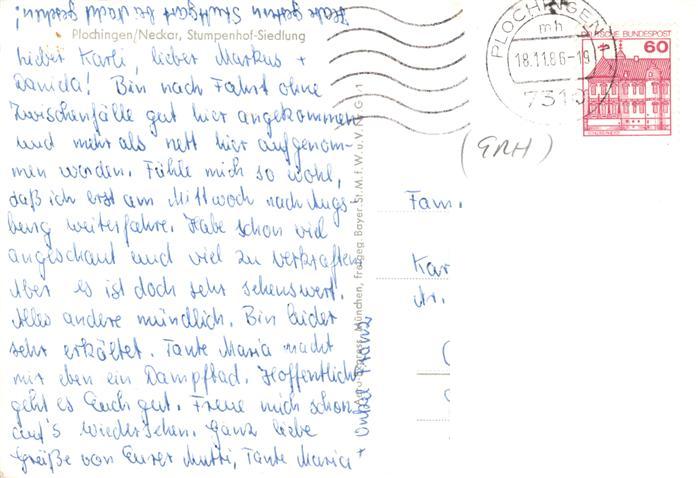 Habe gestern Stuttgart bei Nacht gesehen!
Plochingen/Neckar, Stumpenhof-Siedlung
Lieber Karli, lieber Markus +
Danida! Bin nach Fahrt ohne
Zwischenfälle gut hier angekommen
und mehr als nett hier aufgenom-
men worden. Fühle mich so wohl,
daß ich erst am Mittwoch nach Augs-
burg weiterfahre. Habe schon viel
angeschaut und viel zu verkraften
Aber es ist doch sehr sehenswert.
Alles andere mündlich. Bin leider
sehr erkältet. Tante Maria macht
mir eben ein Dampfbad. Hoffentlich
geht es Euch gut. Freue mich schon
auf's Wiedersehen. Ganz liebe
Grüße von Eurer Mutti, Tante Maria
+ Onkel Franz
München, freigeg. Bayer. St. M. f. W. u. V. Nr. G
PLOCHINGEN 1
mh
18.11.86-19
DEUTSCHE BUNDESPOST
60
(GRH)
Fam.
Kar
Nr.